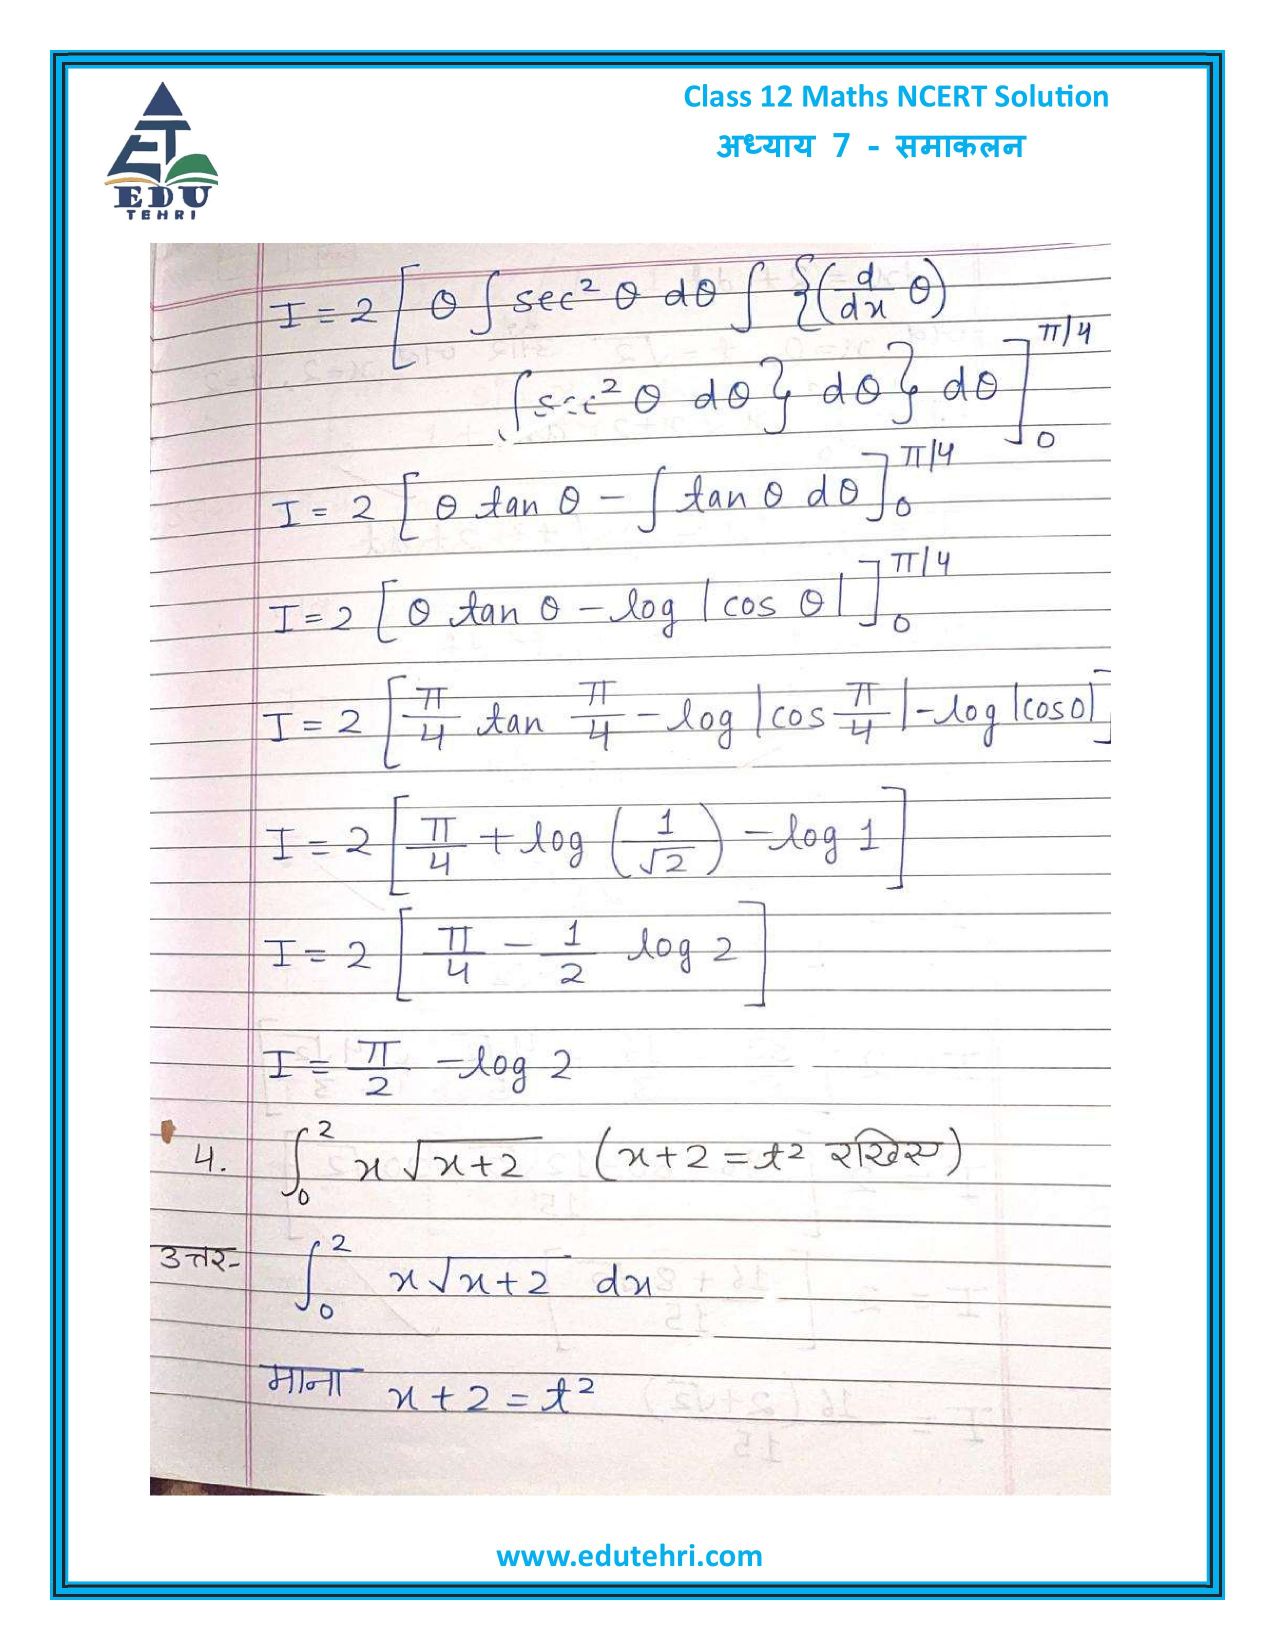 Class 12 Maths NCERT Solution
अध्याय 7 - समाकलन
EDU
TEHRI
I = 2 [ θ ∫ sec² θ dθ ∫ {( d/dx θ)
∫ sec² θ dθ} dθ} dθ ]₀^π/4
I = 2 [ θ tan θ − ∫ tan θ dθ ]₀^π/4
I = 2 [ θ tan θ − log |cos θ| ]₀^π/4
I = 2 [ π/4 tan π/4 − log |cos π/4| − log |cos 0| ]
I = 2 [ π/4 + log (1/√2) − log 1 ]
I = 2 [ π/4 − 1/2 log 2 ]
I = π/2 − log 2
4. ∫₀² x √x+2 (x+2 = t² रखिए)
उत्तर- ∫₀² x√x+2 dx
माना x + 2 = t²
www.edutehri.com